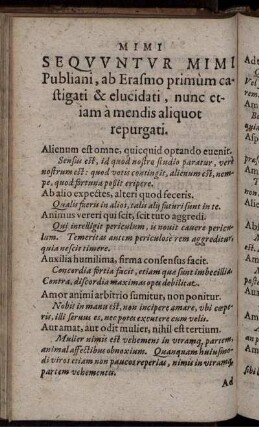 MIMI
SEQVVNTVR MIMI
Publiani, ab Erasmo primùm ca-
stigati & elucidati, nunc et-
iam à mendis aliquot
repurgati.
Alienum est omne, quicquid optando euenit.
Sensus est, id quod nostro studio paratur, verè
nostrum est: quod votis contingit, alienum est, nem-
pe, quod fortuna possit eripere.
Ab alio expectes, alteri quod feceris.
Qualis fueris in alios, tales alij futuri sunt in te.
Animus vereri qui scit, scit tuto aggredi.
Qui intelligit periculum, is nouit cauere pericu-
lum. Temeritas autem periculosè rem aggreditur,
quia nescit timere.
Auxilia humilima, firma consensus facit.
Concordia fortia facit, etiam quæ sunt imbecillia.
Contra, discordia maximas opes debilitat.
Amor animi arbitrio sumitur, non ponitur.
Nobis in manu est, non incipere amare, vbi cœpe-
ris, illi seruus es, nec potes excutere cum velis.
Aut amat, aut odit mulier, nihil est tertium.
Mulier nimis est vehemens in vtramq, partem,
animal affectibus obnoxium. Quanquam huiusmo-
di viros etiam non paucos reperias, nimis in vtramq,
partem vehementes.
Ad